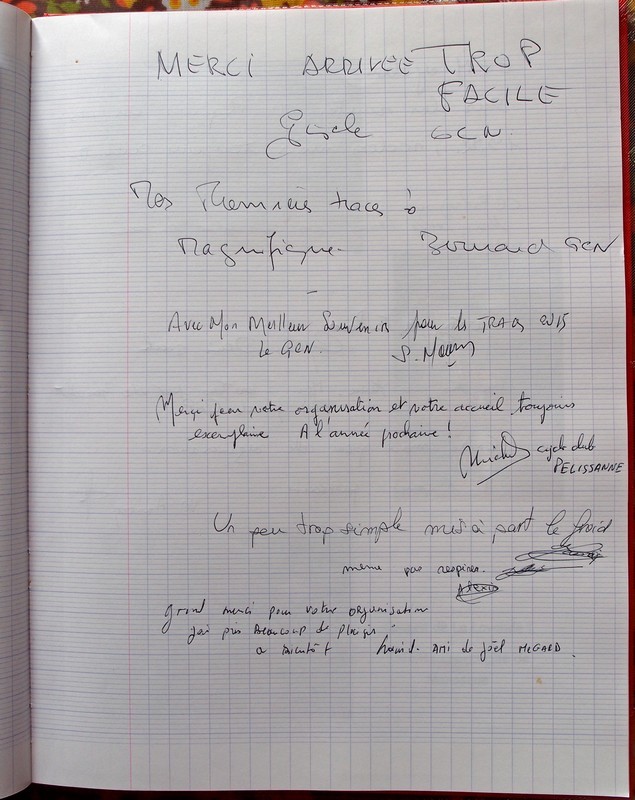 MERCI ARRIVEE TROP
FACILE
Gisele GCN.
Mes Premieres traces à
Magnifique. Bernard GCN
Avec Mon Meilleur Souvenir pour les TRACES 2015
Le GCN.
Merci pour votre organisation et votre accueil toujours
exemplaire A l'année prochaine !
Michel cyclo club
PELISSANNE
Un peu trop simple mis à part le froid
même pas respirer.
Alexis
grand merci pour votre organisation
j'ai pris beaucoup de plaisir
a bientôt AMI de Joël MEGARD.